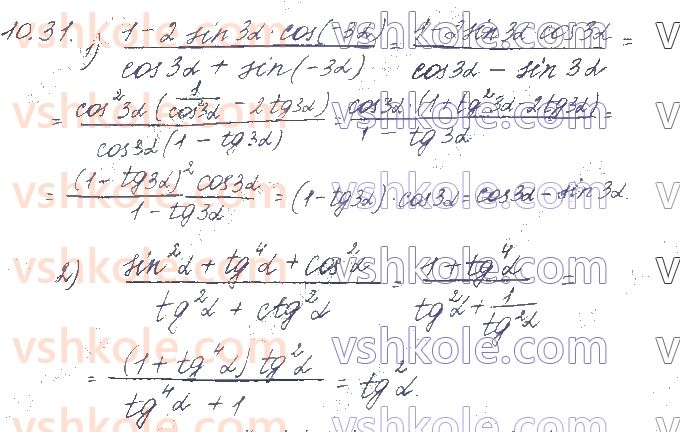 10.31. 1) (1 - 2 sin3α · cos(-3α)) / (cos3α + sin(-3α)) = (1 - 2 sin3α cos3α) / (cos3α - sin3α) =
= (cos²3α (1/cos²3α - 2tg3α)) / (cos3α (1 - tg3α)) = (cos3α · (1 + tg²3α - 2tg3α)) / (1 - tg3α) =
= ((1 - tg3α)² cos3α) / (1 - tg3α) = (1 - tg3α) · cos3α = cos3α - sin3α.
2) (sin²α + tg⁴α + cos²α) / (tg²α + ctg²α) = (1 + tg⁴α) / (tg²α + 1/tg²α) =
= ((1 + tg⁴α) tg²α) / (tg⁴α + 1) = tg²α.
vshkole.com